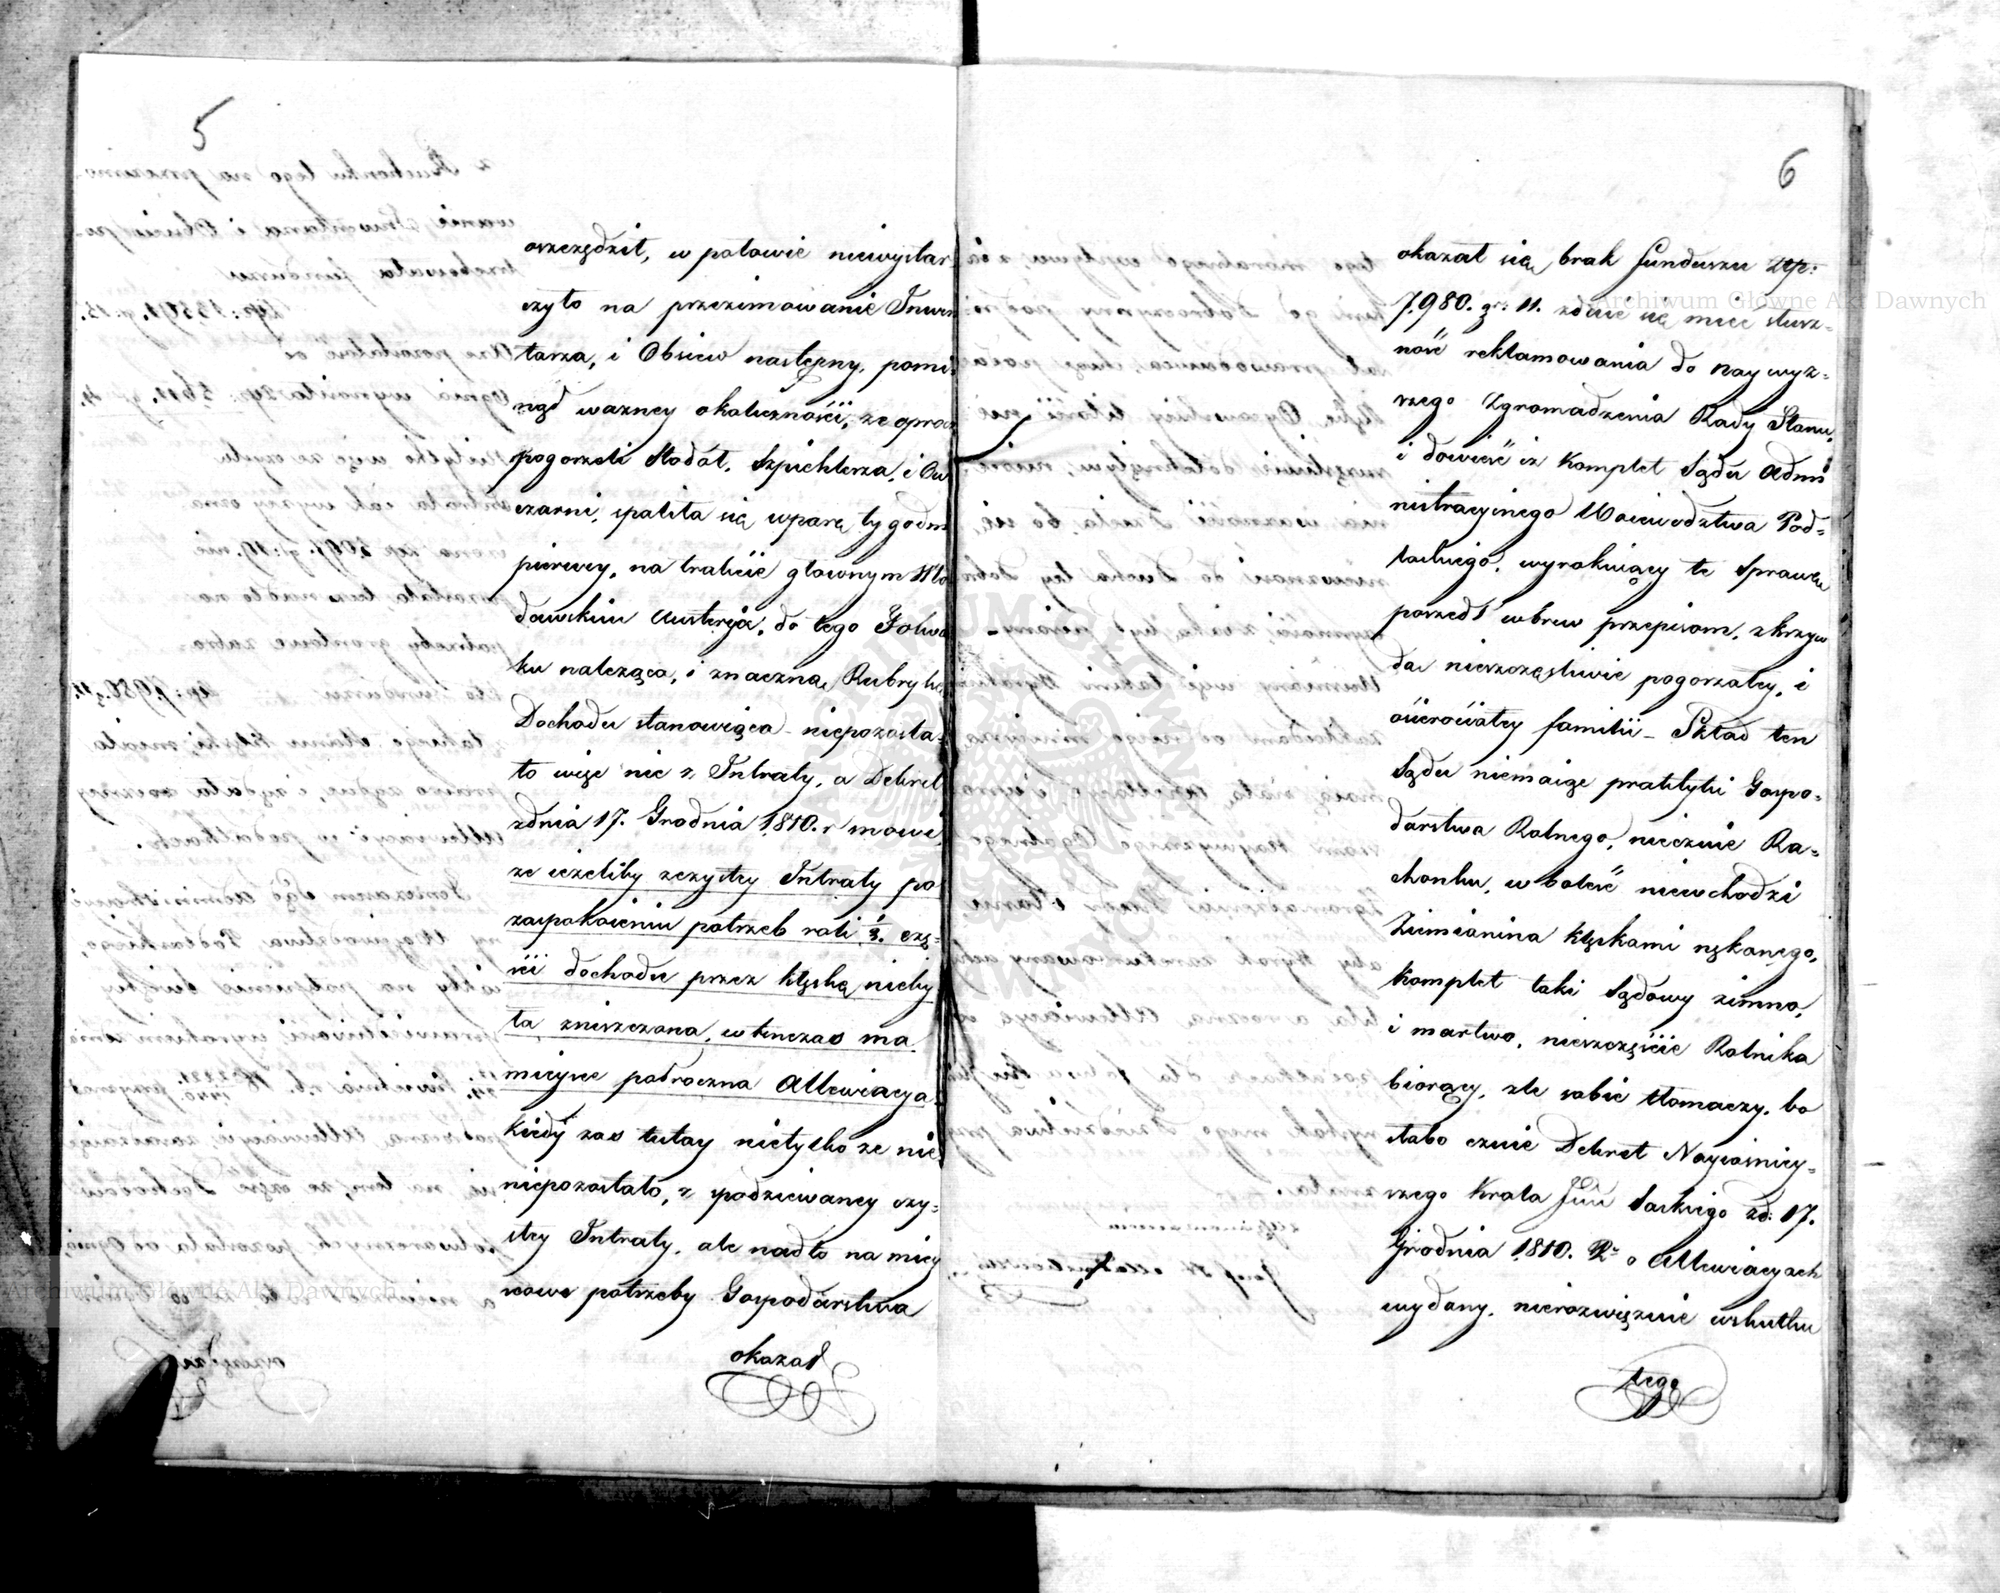 5
oszczędził, w połowie niewystar
czyło na przezimowanie Inwen
tarza, i Obsiew następny, pomi
nąd wazney okoliczności, ze oprócz
pogorzeli Stodół, Szpichlerza, i Ow
czarni, spaliła się w parę tygodni
pierwey, na trakcie głównym Wło
dawskim Austerya, do tego Folwa
ku należąca, i znaczną Rubrykę
Dochodu stanowiąca – niepozosta=
ło więc nic z Intraty, a Dekret
zdnia 17. Grudnia 1810. r mowi,
ze ieżeliby zczystey Intraty po
zaspokoieniu potrzeb roli ⅓. czę=
ści dochodu przez klęskę nieby
ła zniszczona, w tenczas ma
mieysce podroczna Allewiacya.
Kiedy zas tutay nietylko ze nic
niepozostało, z spodziewaney czy=
stey Intraty, ale nadto na miey
scowe potrzeby Gospodarstwa
okazał
6
okazał się brak funduszu Złp:
7,980. gr: 11. zdaie się mieć słusz=
ność reklamowania do naywyz=
szego Zgromadzenia Rady Stanu,
i dowieść iz Komplet Sądu Admi
nistracyinego Woiewodztwa Pod=
laskiego, wyrokuiący tę Sprawę
poszedł wbrew przepisom, z krzyw
dą nieszczęśliwie pogorzałey, i
osierociałey familii – Skład ten
Sądu niemaiąc praktyki Gospo=
darstwa Rolnego, nieczuie Ra=
chonku, w boleść niewchodzi
Ziemianina klęskami nękanego,
Komplet taki Sądowy zimno,
i martwo, nieszczęście Rolnika
biorący, zle sobie tłomaczy, bo
słabo czuie Dekret Nayiaśniey=
szego Krola Saskiego zd: 17.
Grudnia 1810. R. o Allewiacyach
wydany, nierozwiązuie w skutku
tego
Archiwum Główne Akt Dawnych
Archiwum Główne Akt Dawnych